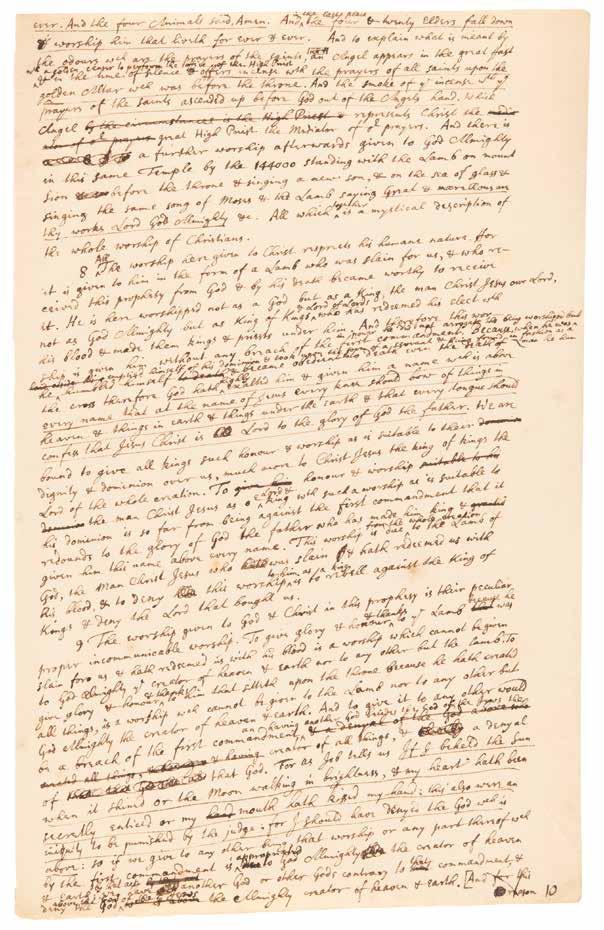 ever. And the four Animals said, Amen. And, in the last place the four & twenty Elders fall down
& worship him that liveth for ever & ever. And to explain what is meant by
the odours wch are the prayers of the saints, an Angel appears in the great fast
wth a golden censer to perform the office of the High Priest
& in the time of silence & offers incense wth the prayers of all saints upon the
golden Altar wch was before the throne. And the smoke of ye incense wth ye
prayers of the saints ascended up before God out of the Angels hand. Which
Angel by the circumstances is the High Priest & represents Christ the
great High Priest the Mediator of or prayers. And there is
a further worship afterwards given to God Almighty
in this same Temple by the 144000 standing with the Lamb on mount
Sion before the throne & singing a new song, & on the sea of glass &
singing the same song of Moses & the Lamb saying Great & marvellous are
thy works Lord God Almighty &c. All which together is a mystical description of
the whole worship of Christians.
8 All The worship here given to Christ respects his humane nature. For
it is given to him in the form of a Lamb who was slain for us, & who re-
ceived this prophesy from God & by his death became worthy to receive
it. He is here worshipped not as a God but as a King, the man Christ Jesus our Lord,
not as God Almighty but as King of Kings & Lord of Lords, who has redeemed his elect wth
his blood & made them kings & priests under him. And therefore this wor-
ship is given him without any breach of the first commandment. Because,
he humbled himself & became obedient to death even the death of
the cross therefore God hath highly exalted him & given him a name wch is above
every name that at the name of Jesus every knee should bow of things in
heaven & things in earth & things under the earth & that every tongue should
confess that Jesus Christ is Lord to the glory of God the father. We are
bound to give all kings such honour & worship as is suitable to their
dignity & dominion over us, much more to Christ Jesus the King of kings the
Lord of the whole creation. To give him honour & worship suitable to his
the man Christ Jesus as or Lord & King wth such a worship as is suitable to
his dominion is so far from being against the first commandment that it
redounds to the glory of God the father who has made him king &
given him this name above every name. This worship is due from the whole creation to the Lamb of
God, the Man Christ Jesus who was slain & hath redeemed us with
his blood, & to deny this worship to him as a king is to rebell against the King of
Kings & deny the Lord that bought us.
9 The worship given to God & Christ in this prophesy is their peculiar
proper incommunicable worship. To give glory & honour & thanks to ye Lamb because he was
slain for us & hath redeemed us with his blood is a worship which cannot be given
to God Almighty ye creator of heaven & earth nor to any other but the lamb. To
give glory & honour & thanks to him that sitteth upon the throne because he hath created
all things, is a worship wch cannot be given to the Lamb nor to any other but
God Almighty the creator of heaven & earth. And to give it to any other would
be a breach of the first commandment,
of creator of all things, & a denyal
of that God. For as Job tells us If I beheld the Sun
when it shined or the Moon walking in brightness, & my heart hath been
secretly enticed or my mouth hath kissed my hand: this also were an
iniquity to be punished by the judge: for I should have denyed the God wch is
above: so if we give to any other being that worship or any part thereof wch
by the first commandment is appropriated to God Almighty the creator of heaven
& earth, we have another God or other Gods contrary to that commandment, &
deny the God the Almighty creator of heaven & earth. [And for this
reason 10